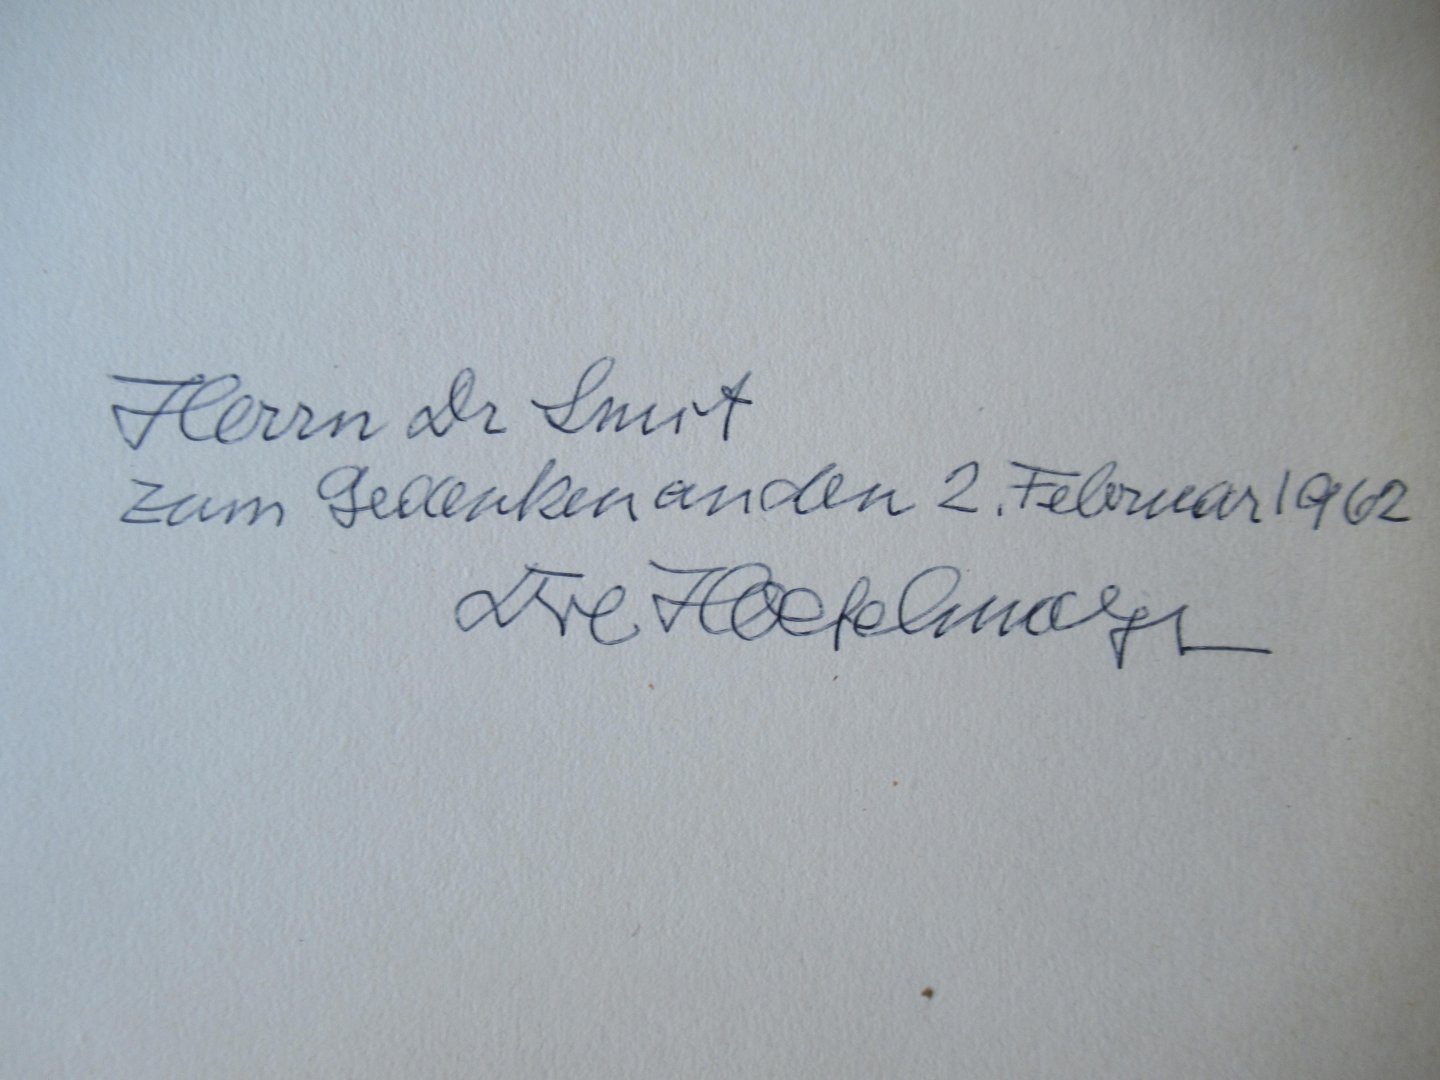 Herrn Dr Smit
zum Gedenken an den 2. Februar 1962